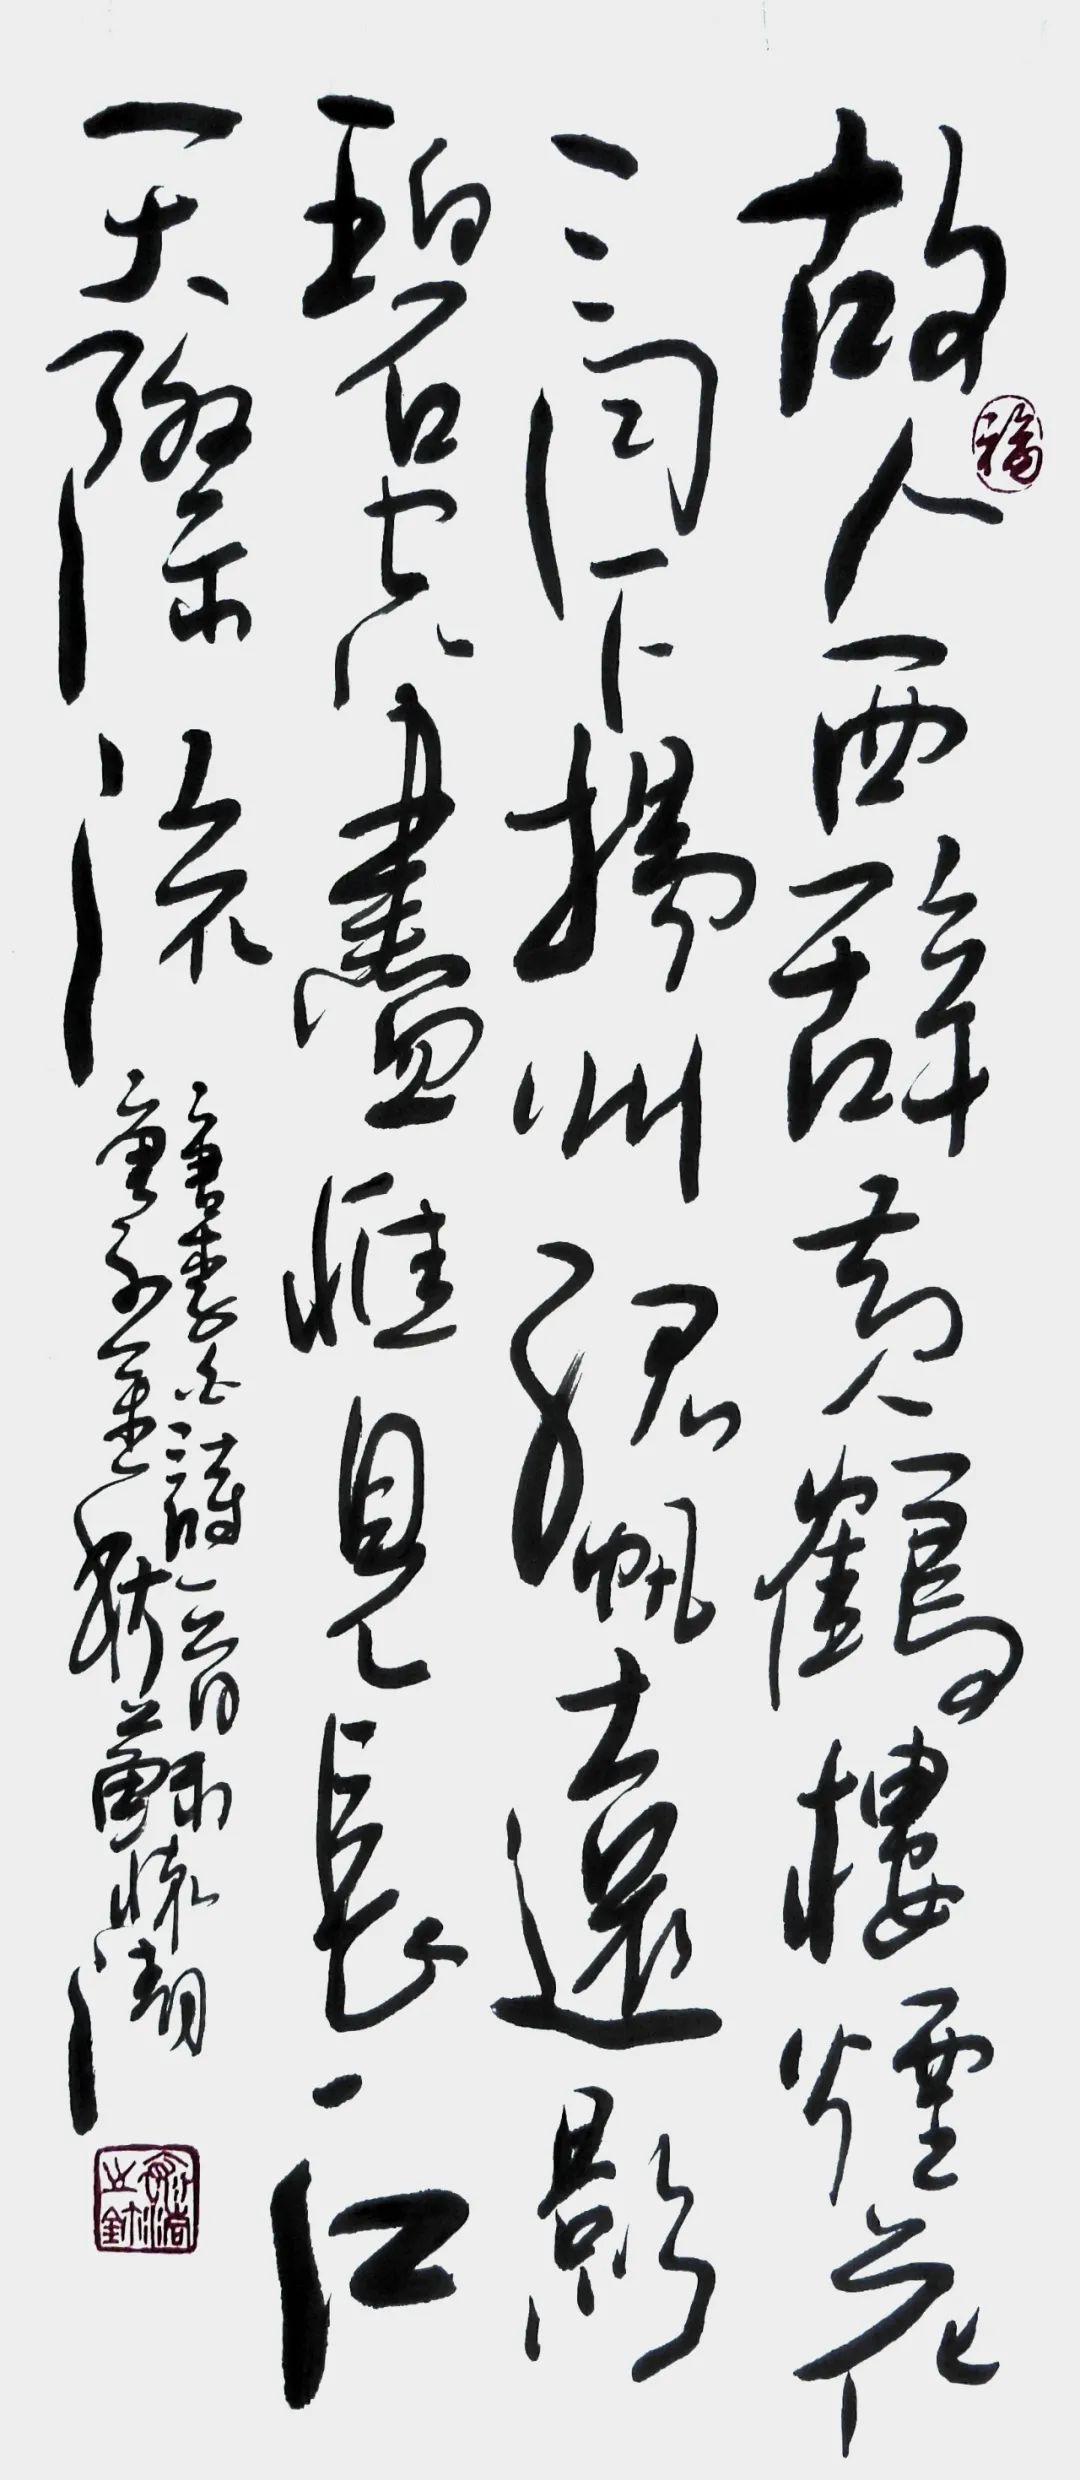 故人西辭黄鶴樓煙花
三月下揚州孤帆遠影
碧空盡惟見長江
天際流
唐李白詩一首
庚子
福